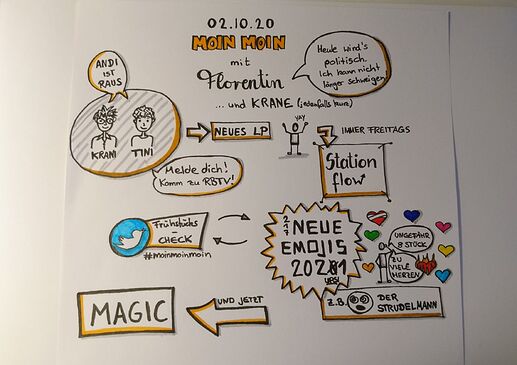 02.10.20
MOIN MOIN
mit
Florentin
... und KRANE (jedenfalls kurz)
Heute wird's
politisch.
Ich kann nicht
länger schweigen
ANDI
IST
RAUS
KRANI
TINI
Melde dich!
Komm zu RBTV!
NEUES LP
YAY
IMMER FREITAGS
Station
flow
Frühstücks
-CHECK
#moinmoinmoin
217
NEUE
EMOJIS
2021
YES!
UNGEFÄHR
8 STÜCK
ZU
VIELE
HERZEN
Z.B.
DER
STRUDELMANN
UND JETZT
MAGIC